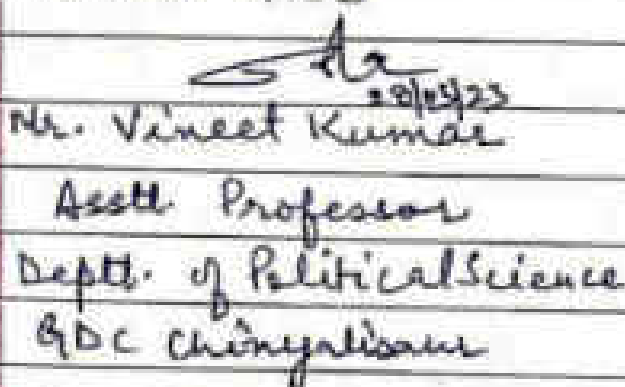 28/03/23
Mr. Vineet Kumar
Asstt. Professor
Deptt. of Political Science
GDC Chinyalisaur